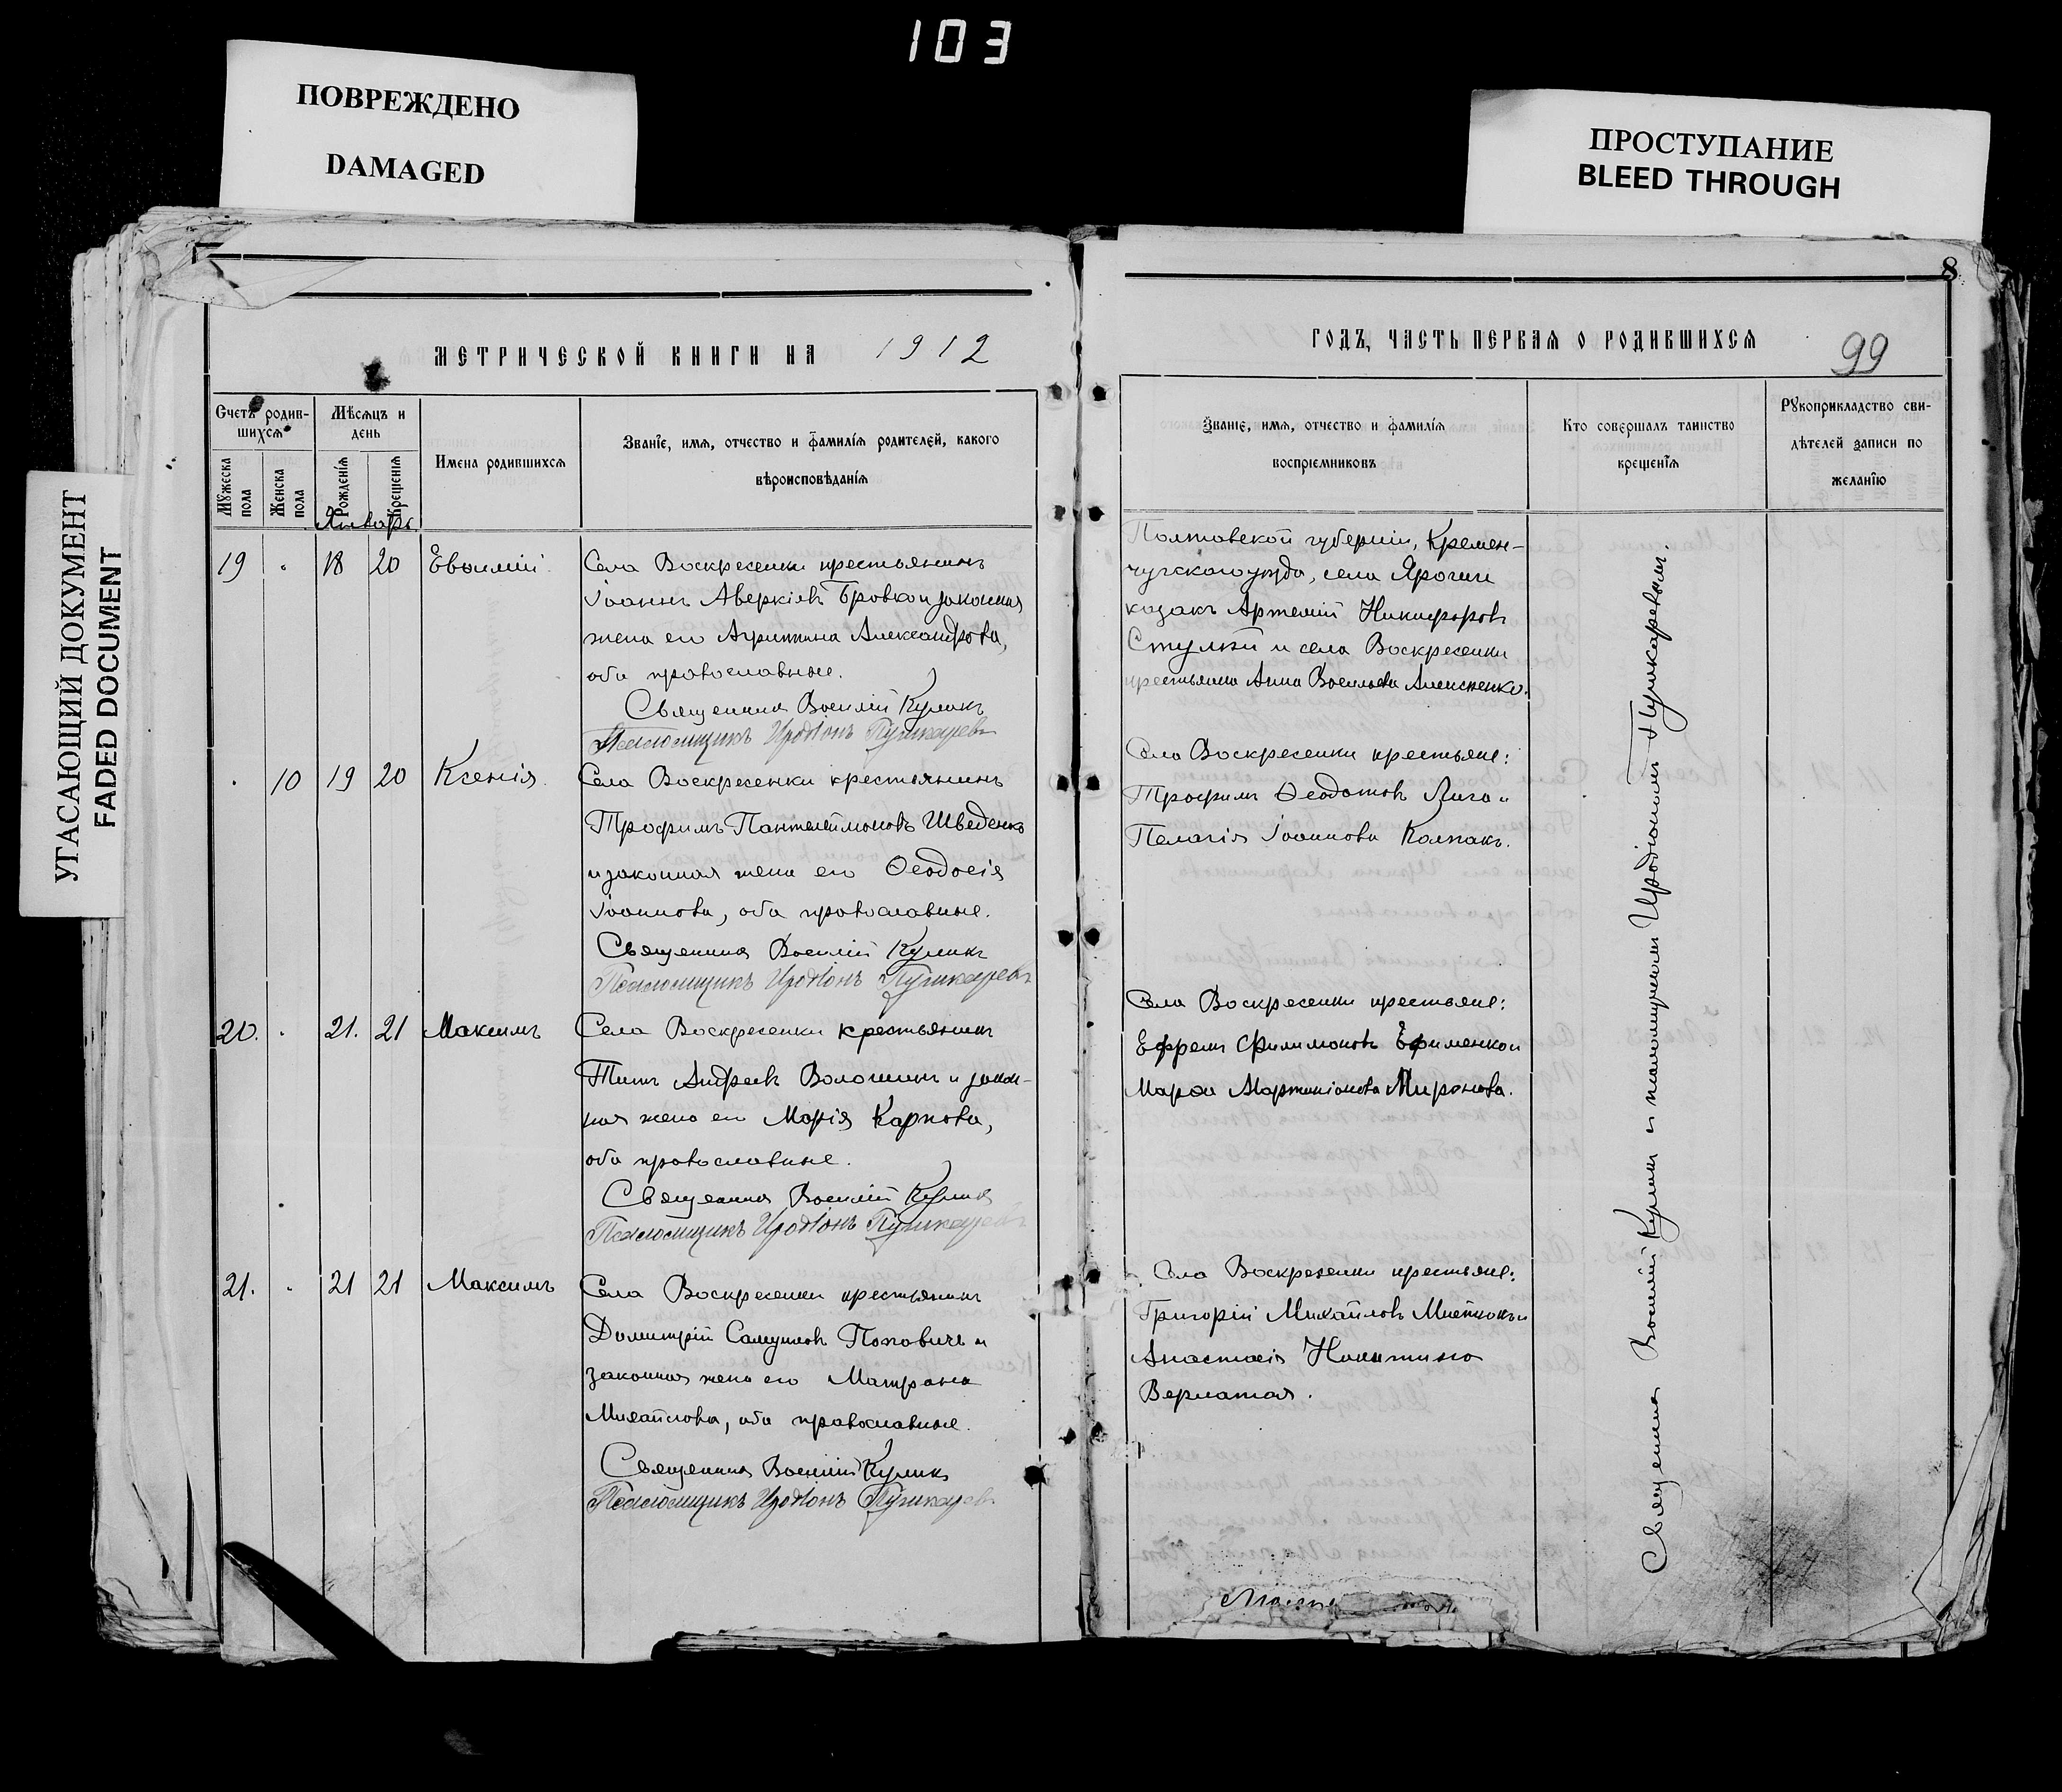 103
ПОВРЕЖДЕНО
DAMAGED
ПРОСТУПАНИЕ
BLEED THROUGH
УГАСАЮЩИЙ ДОКУМЕНТ
FADED DOCUMENT
МЕТРИЧЕСКОЙ КНИГИ НА 1912
Счетъ родив-
шихся
Мѣсяцъ и
день
Мужеска
пола
Женска
пола
Рожденія
Крещенія
Имена родившихся
Званіе, имя, отчество и фамилія родителей, какого
вѣроисповѣданія
Январь.
19 18 20 Евѳимій
Села Воскресенки крестьянинъ
Іоаннъ Аверкіевъ Бровко и законная
жена его Агриппина Александрова,
оба православные.
Священникъ Василій Куликъ
Псаломщикъ Иродіонъ Пушкаревъ
10 19 20 Ксенія
Села Воскресенки крестьянинъ
Трофимъ Пантелеймоновъ Шведенко
и законная жена его Ѳеодосія
Іоаннова, оба православные.
Священникъ Василій Куликъ
Псаломщикъ Иродіонъ Пушкаревъ
20. 21. 21 Максимъ
Села Воскресенки крестьянинъ
Титъ Андреевъ Волошинъ и закон-
ная жена его Марія Карпова,
оба православные.
Священникъ Василій Куликъ
Псаломщикъ Иродіонъ Пушкаревъ
21. 21 21 Максимъ
Села Воскресенки крестьянинъ
Димитрій Самуиловъ Поповичъ и
законная жена его Матрона
Михайлова, оба православные.
Священникъ Василій Куликъ
Псаломщикъ Иродіонъ Пушкаревъ
8
ГОДЪ, ЧАСТЬ ПЕРВАЯ О РОДИВШИХСЯ
99
Званіе, имя, отчество и фамилія
воспріемниковъ
Кто совершалъ таинство
крещенія
Рукоприкладство сви-
дѣтелей записи по
желанію
Полтавской губерніи, Кремен-
чугскаго уѣзда, села
казакъ Артемій Никифоровъ
и села Воскресенки
крестьянка Анна Васильева
Села Воскресенки крестьяне:
Трофимъ Ѳеодотовъ Лига и
Пелагія Іоаннова Колпакъ.
Села Воскресенки крестьяне:
Ефремъ Филимоновъ Ефименко и
Марѳа Мартиніанова Миронова.
Села Воскресенки крестьяне:
Григорій Михайловъ
Анастасія Никитина
Верлатая.
Священникъ Василій Куликъ и псаломщикъ Иродіонъ Пушкаревъ.